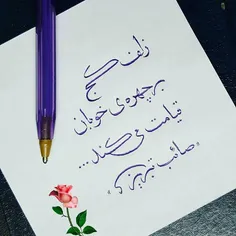 زلف کج
بر چهره‌ی خوبان
قیامت می‌کند...
"صائب تبریزی"